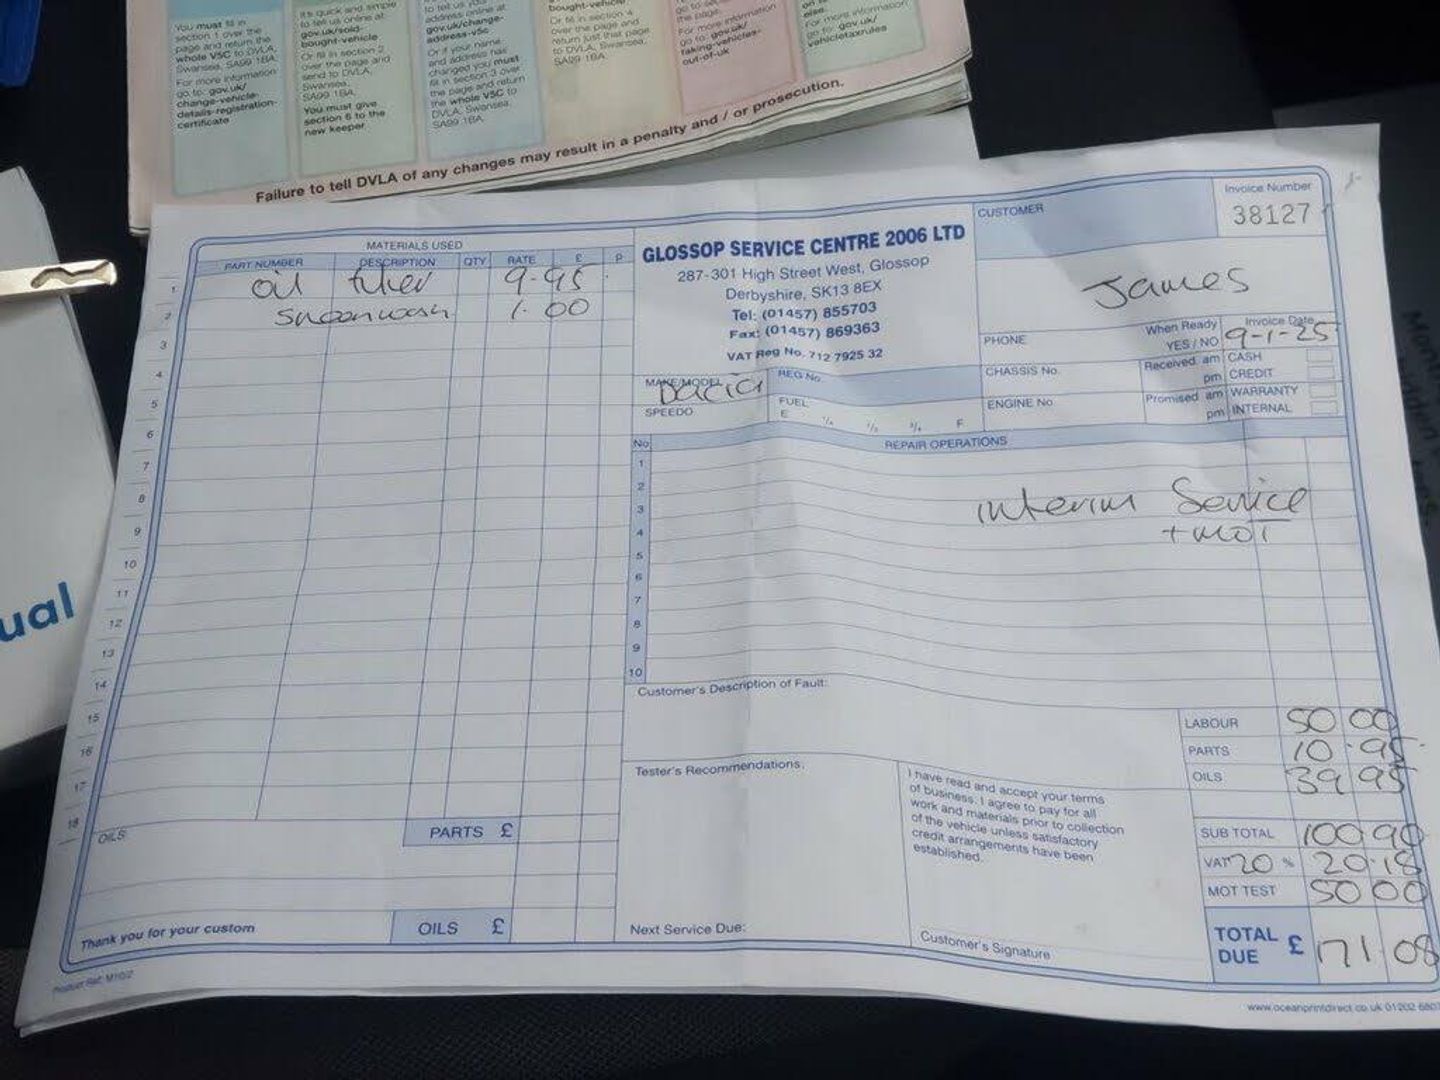 You must fill in
section 1 over the
page and return the
whole V5C to DVLA,
Swansea, SA99 1BA.
For more information
go to: gov.uk/
change-vehicle-
details-registration-
certificate
It's quick and simple
to tell us online at
gov.uk/sold-
bought-vehicle
Or fill in section 2
over the page and
send to DVLA,
Swansea,
SA99 1BA.
You must give
section 6 to the
new keeper
to tell us your
address online at
gov.uk/change-
address-v5c
Or if your name
and address has
changed you must
fill in section 3 over
the page and return
the whole V5C to
DVLA, Swansea,
SA99 1BA
bought-vehicle
Or fill in section 4
over the page and
return just that page
to DVLA, Swansea,
SA99 1BA.
the page.
For more information
go to: gov.uk/
taking-vehicles-
out-of-uk
else.
For more information
go to: gov.uk/
vehicletaxrules
Failure to tell DVLA of any changes may result in a penalty and / or prosecution.
ual
MATERIALS USED
PART NUMBER DESCRIPTION QTY RATE £ P
1 oil filter 9.95
2 Screenwash 1.00
3
4
5
6
7
8
9
10
11
12
13
14
15
16
17
18
OILS
PARTS £
OILS £
Thank you for your custom
Product Ref: M10/2
GLOSSOP SERVICE CENTRE 2006 LTD
287-301 High Street West, Glossop
Derbyshire, SK13 8EX
Tel: (01457) 855703
Fax: (01457) 869363
VAT Reg No. 712 7925 32
CUSTOMER
Invoice Number
38127
James
PHONE
When Ready
YES / NO
Invoice Date
9-1-25
MAKE/MODEL Dacia
REG No.
CHASSIS No.
Received am
pm
CASH
CREDIT
SPEEDO
FUEL
E 1/4 1/2 3/4 F
ENGINE No.
Promised am
pm
WARRANTY
INTERNAL
No. REPAIR OPERATIONS
1
2
3 interim Service
4 + MOT
5
6
7
8
9
10
Customer's Description of Fault:
Tester's Recommendations:
I have read and accept your terms
of business. I agree to pay for all
work and materials prior to collection
of the vehicle unless satisfactory
credit arrangements have been
established.
Next Service Due:
Customer's Signature
LABOUR 50 00
PARTS 10.95
OILS 39 95
SUB TOTAL 100 90
VAT 20 % 20.18
MOT TEST 50 00
TOTAL DUE £ 171 08